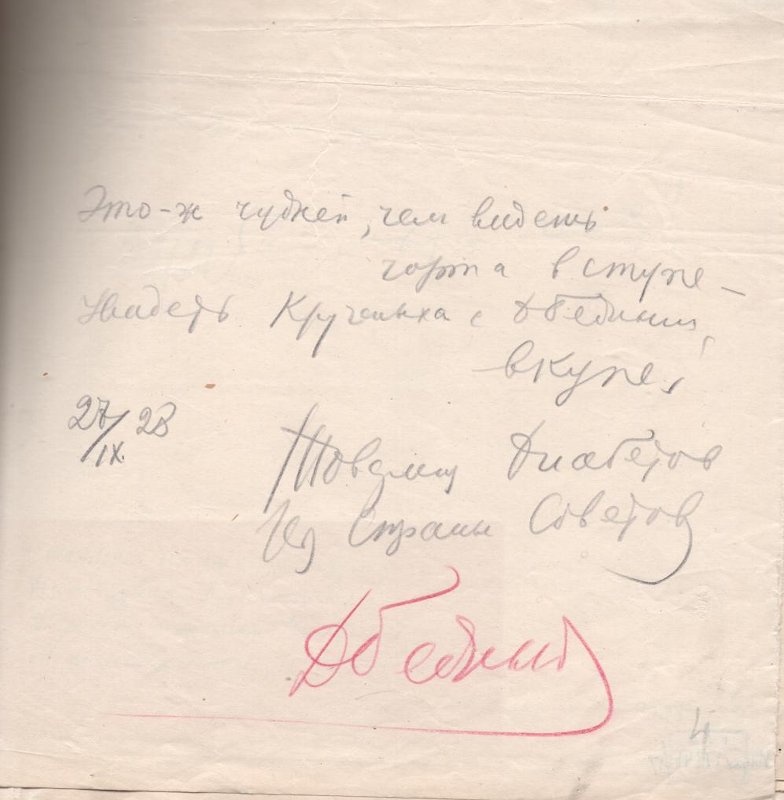 Это-ж чудней, чем видеть
чорта в ступе —
Увидеть Крученыха с ДБедным,
вкупе,
27/IX. 28
Товарищ Диабетов
Из Страны Советов
ДБедный
4